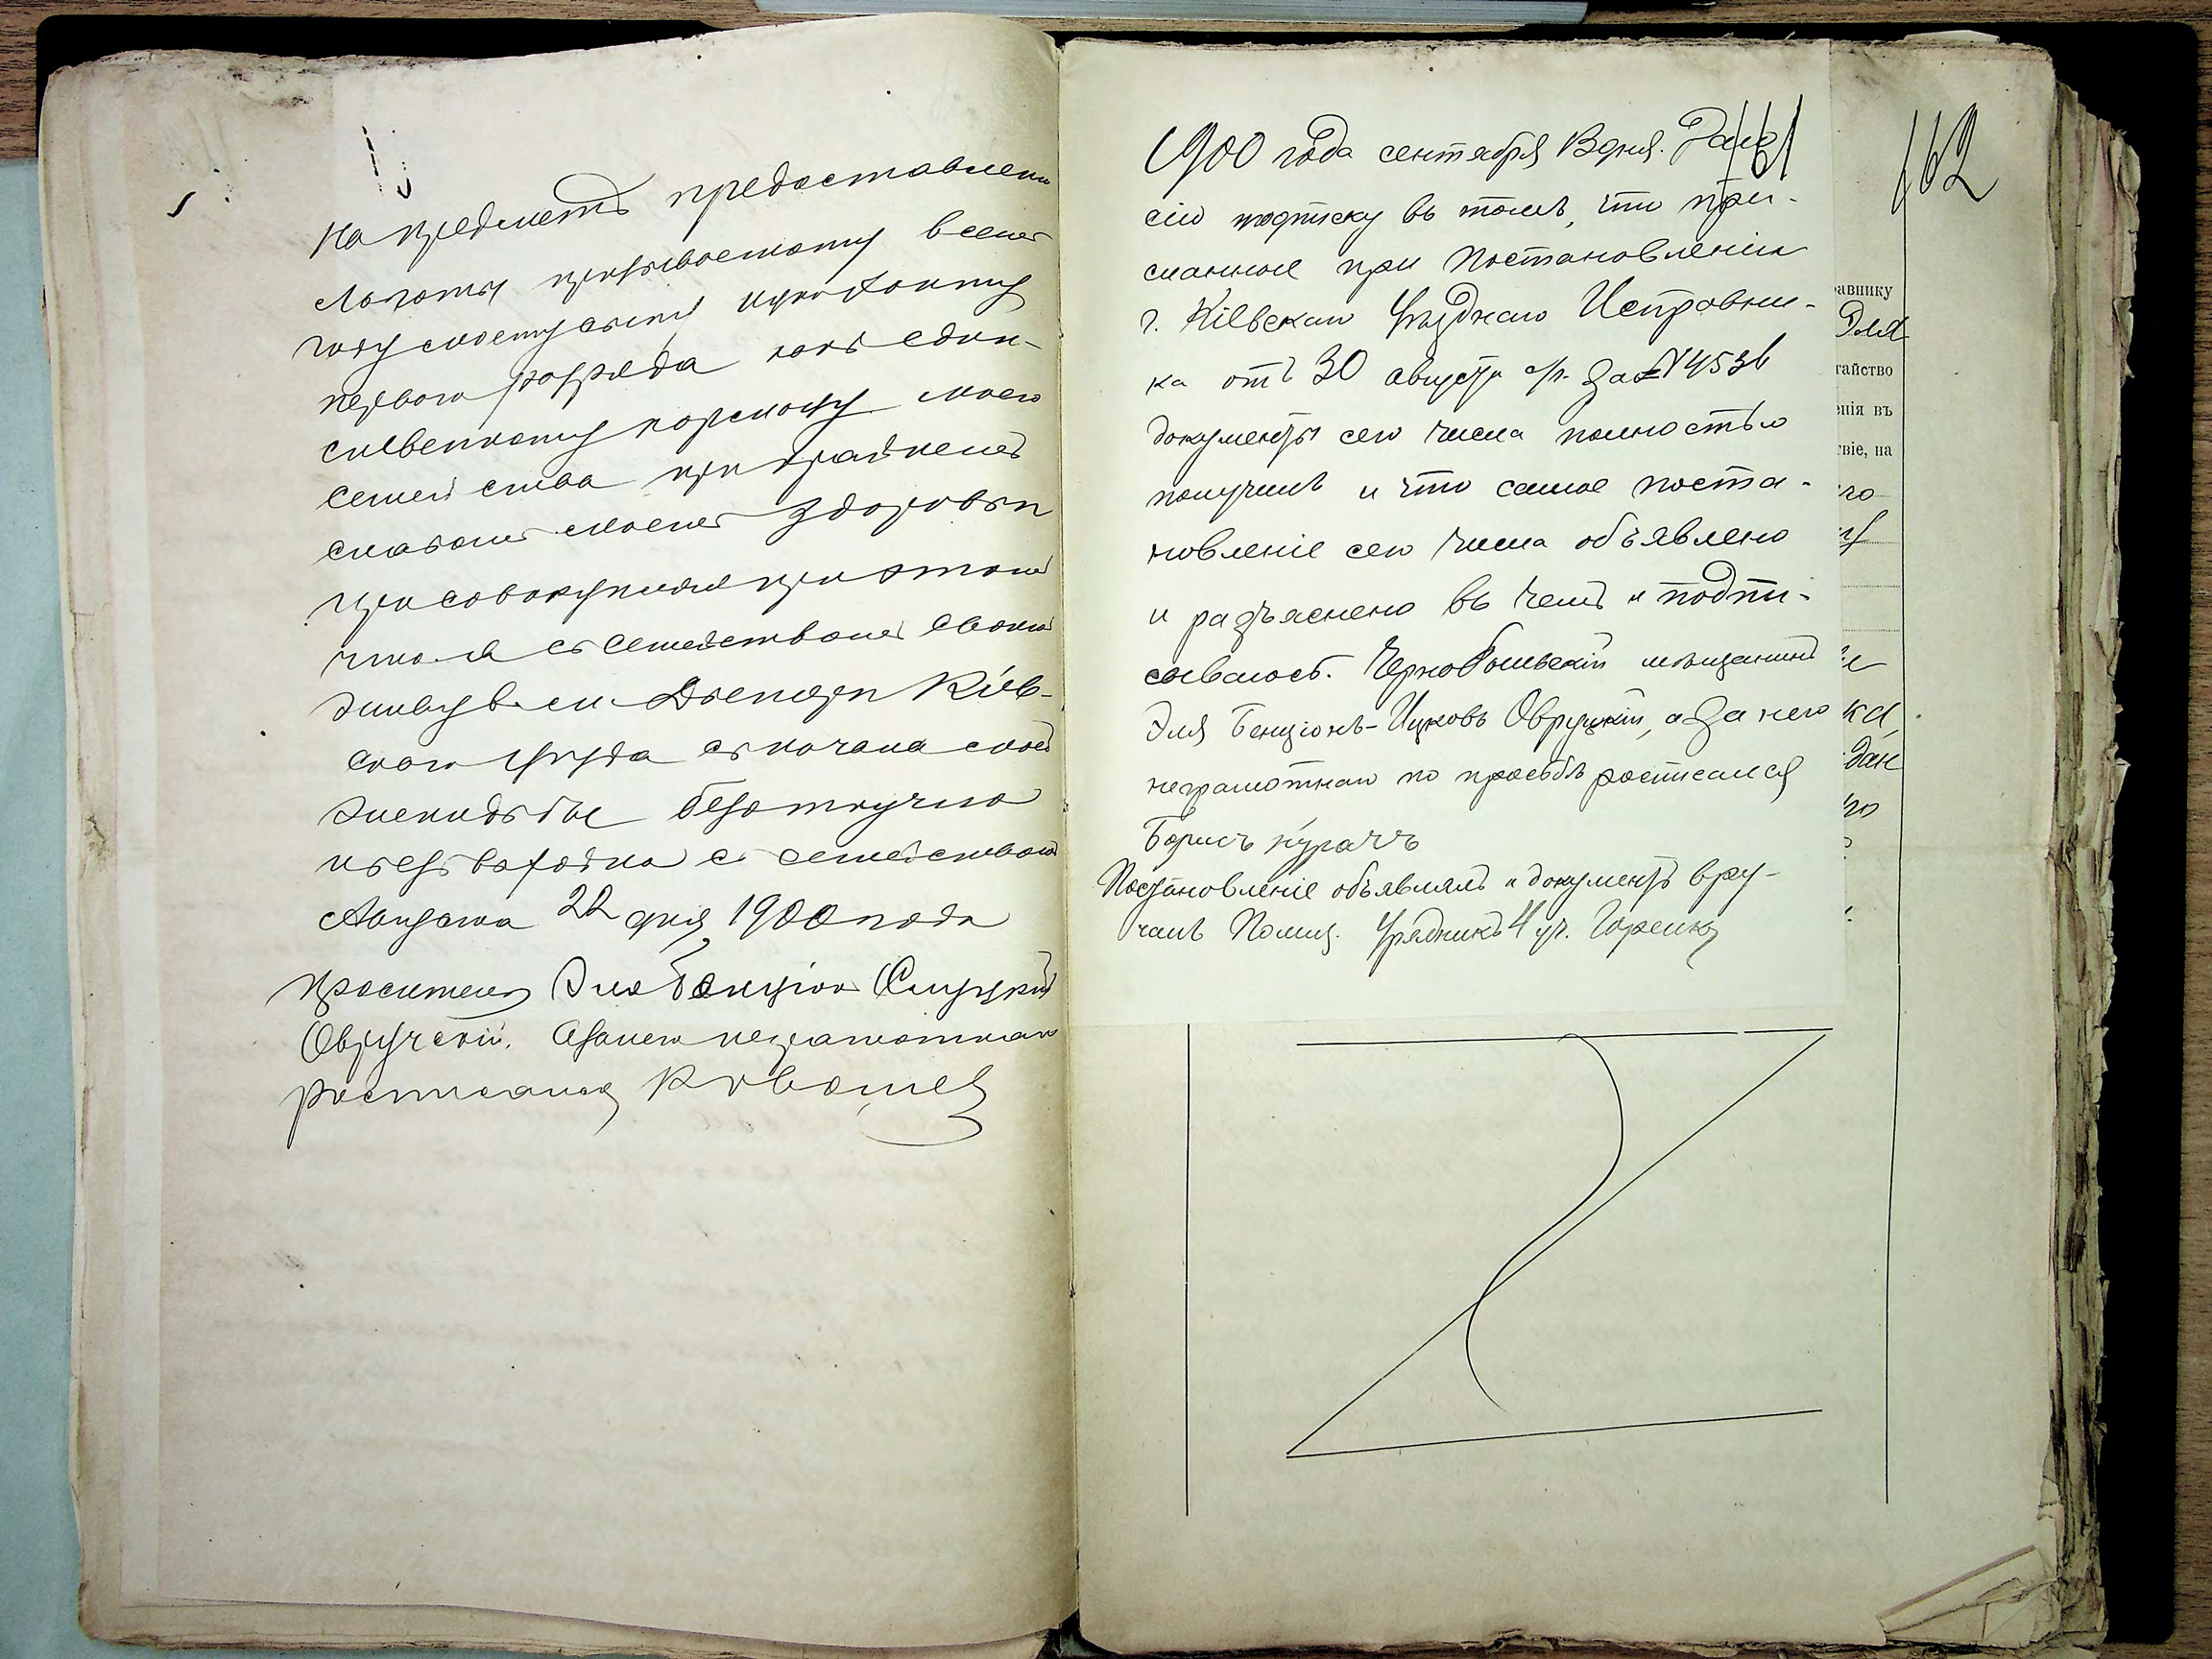 На предметъ предоставлени
льготы призываемому всемъ
году моему сыну Ицко Хаиму
первого розряда какъ един-
ственному кормильцу моего
семейства при крайнемъ
слабомъ моемъ здоровьи
присовокупляя при этомъ
что я съ семействомъ своимъ
живу в. м. Дымеръ Кіев-
ского уѣзда съ начала моей
женидьбы безотлучно
нѣезъ въходно съ семействомъ
Августа 22 дня 1900 года
Проситель Эля Бенціон
Овручскій. А за него неграмотнаго
росписался
1900 года сентября 3 дня. Далъ 161
сію подписку въ томъ, что при-
сланные при постановленіи
г. Кіевскаго Уѣзднаго Исправни-
ка отъ 30 августа с/г. за № 4536
документы сего числа полностью
получилъ и что самое поста-
новленіе сего числа объявлено
и разъяснено въ чемъ и подпи-
сываюсь. Чернобыльскій мѣщанинъ
Эля Бенціонъ-Ицковъ Овруцкій, а за него
неграмотнаго по просьбѣ росписался
Борисъ Кугачъ
Постановленіе объявлялъ и документъ вру-
чалъ Полиц. Урядникъ 4 уч.
162
авнику
тайство
енія въ
твіе, на
го
ка
дан
го